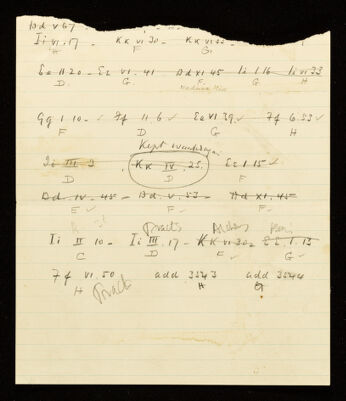 Dd v 67
Ii vi. 17 - Kk vi 30 -
H F G
Ee 11 20 - Ee vi. 41 Dd xi 45 Ii 1 16 Ii vi 33
D G F G H
Gg 1 10 - ✓ Ff 11 6 ✓ Ee vi 39 ✓ Ff 6.53 ✓
F D G H
Kept
Ii III 3 Kk IV 25. Ee 1 15 ✓
D D F
Dd. iv. 45 - Dd. v. 53 - Dd xi. 45
E ✓ F ✓ F ✓
Ii II 10 - Ii III. 17 - Kk vi 30 Ee. 1. 13
C D F ✓ G ✓
Ff vi. 50 add 3543 add 3544
H H G